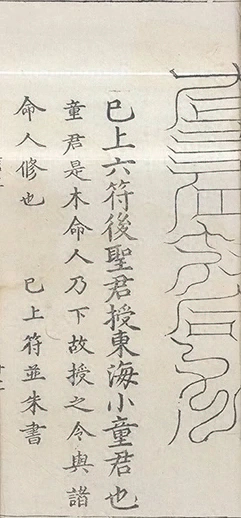 已上六符後聖君授東海小童君也
童君是木命人乃下故授之令與諸
命人修也　已上符並朱書